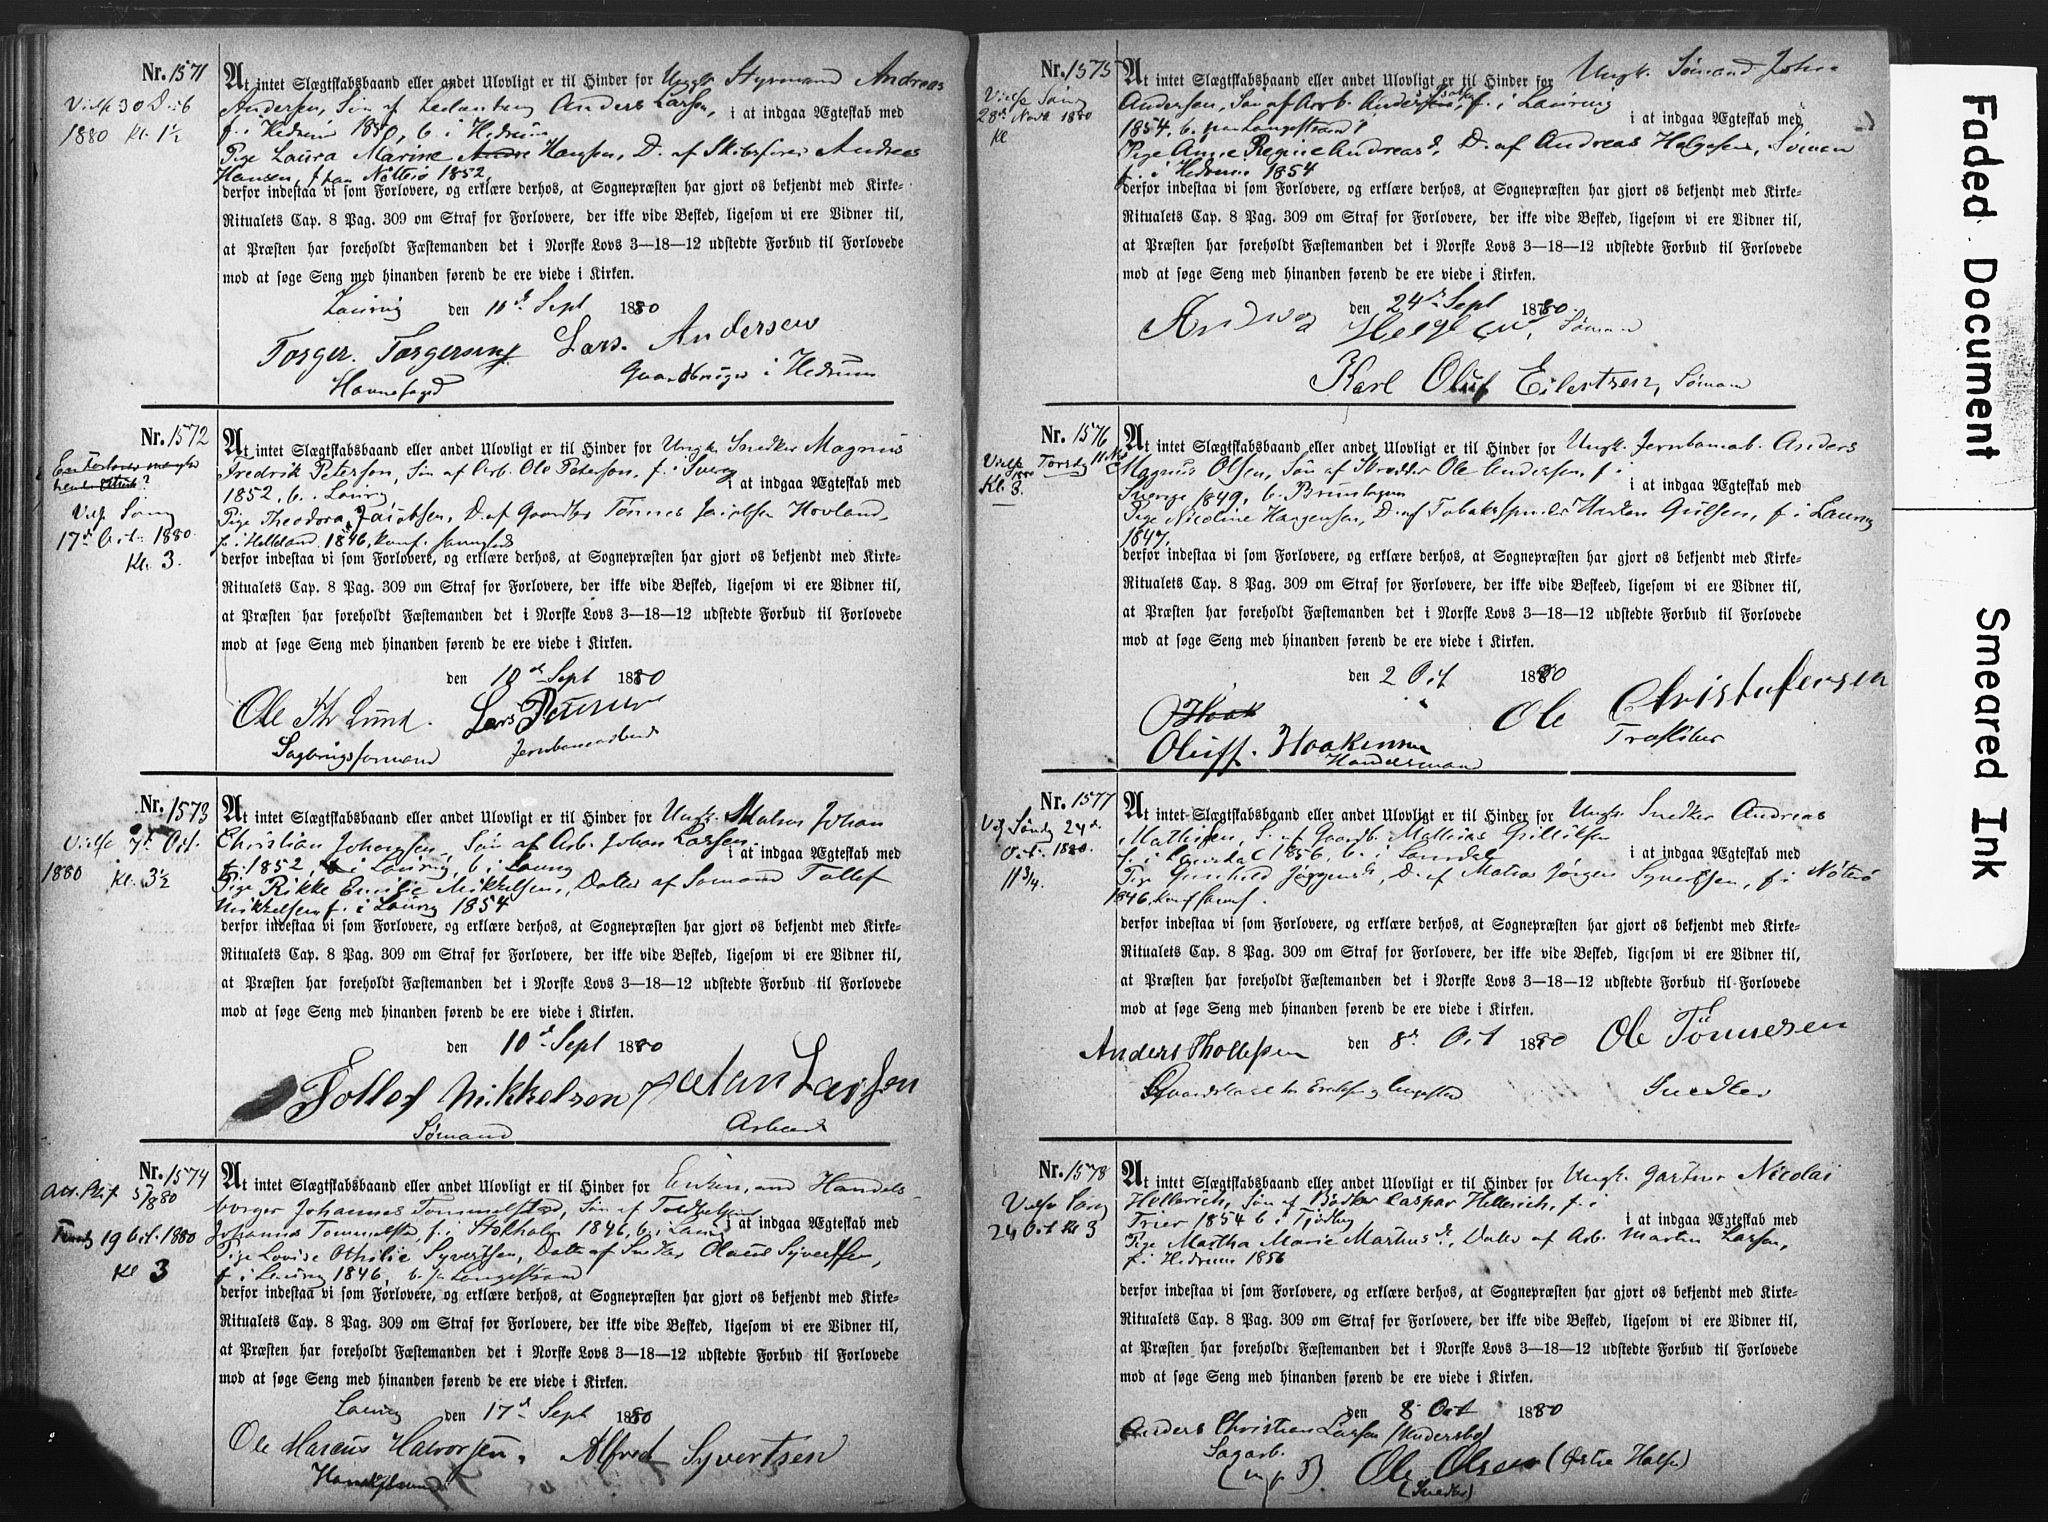 Nr. 1571
Vielse 30 Oct
1880 Kl. 1½
At intet Slægtskabsbaand eller andet Ulovligt er til Hinder for Ungk. Styrmand Andreas
Andersen, Søn af Anders Larsen, i at indgaa Ægteskab med
f. i Hedrum 1850, b. i Hedrum
Pige Laura Marine Hansen, D. af Skibsfører Andreas
Hansen, f. paa Nøtterø 1852,
derfor indestaa vi som Forlovere, og erklære derhos, at Sognepræsten har gjort os bekjendt med Kirke-
Ritualets Cap. 8 Pag. 309 om Straf for Forlovere, der ikke vide Besked, ligesom vi ere Vidner til,
at Præsten har foreholdt Fæstemanden det i Norske Lovs 3—18—12 udstedte Forbud til Forlovede
mod at søge Seng med hinanden førend de ere viede i Kirken.
Laurvig den 10de Sept 1880
Torger Torgersen Lars Andersen
Havnefoged Gaardbruger i Hedrum
Nr. 1572
Vielse Søndg
17de Oct. 1880.
Kl. 3.
At intet Slægtskabsbaand eller andet Ulovligt er til Hinder for Ungk. Snedker Magnus
Fredrik Peterson, Søn af Arb. Ole Peterson, f. i Sverig
1852, b. i Laurvig i at indgaa Ægteskab med
Pige Theodora Jacobsen, D. af Gaardbr Tønnes Jacobsen Hovland,
f. i Helleland 1846, konf. sammesteds
derfor indestaa vi som Forlovere, og erklære derhos, at Sognepræsten har gjort os bekjendt med Kirke-
Ritualets Cap. 8 Pag. 309 om Straf for Forlovere, der ikke vide Besked, ligesom vi ere Vidner til,
at Præsten har foreholdt Fæstemanden det i Norske Lovs 3—18—12 udstedte Forbud til Forlovede
mod at søge Seng med hinanden førend de ere viede i Kirken.
den 10de Sept 1880
Ole Lund. Lars Petersen
Sagbrugsformand Jernbanearbeider
Nr. 1573
Vielse 7de Oct.
1880 Kl. 3½
At intet Slægtskabsbaand eller andet Ulovligt er til Hinder for Ungk. Matros Johan
Christian Johansen, Søn af Arb. Johan Larsen
f. 1852, i Laurvig, b. i Laurvig i at indgaa Ægteskab med
Pige Rikke Emilie Mikkelsen, Datter af Sømand Tollef
Mikkelsen f. i Laurvig 1854
derfor indestaa vi som Forlovere, og erklære derhos, at Sognepræsten har gjort os bekjendt med Kirke-
Ritualets Cap. 8 Pag. 309 om Straf for Forlovere, der ikke vide Besked, ligesom vi ere Vidner til,
at Præsten har foreholdt Fæstemanden det i Norske Lovs 3—18—12 udstedte Forbud til Forlovede
mod at søge Seng med hinanden førend de ere viede i Kirken.
den 10de Sept 1880
Tollef Mikkelsen Johan Larssen
Sømand Arbeider
Nr. 1574
19 Oct. 1880
Kl 3
At intet Slægtskabsbaand eller andet Ulovligt er til Hinder for Enkemand Handels-
borger Johannes Tommelstad, Søn af
Johannes Tommelstad, f. i Stokholm 1846, b. i Laurvig i at indgaa Ægteskab med
Pige Lovise Othilie Syvertsen, Datter af Snedker Olaus Syvertsen,
f. i Laurvig 1846, b. paa Langestrand
derfor indestaa vi som Forlovere, og erklære derhos, at Sognepræsten har gjort os bekjendt med Kirke-
Ritualets Cap. 8 Pag. 309 om Straf for Forlovere, der ikke vide Besked, ligesom vi ere Vidner til,
at Præsten har foreholdt Fæstemanden det i Norske Lovs 3—18—12 udstedte Forbud til Forlovede
mod at søge Seng med hinanden førend de ere viede i Kirken.
Laurvig den 17de Sept 1880
Ole Marcus Halvorsen. Alfred Syvertsen
Nr. 1575
Vielse Søndg
28de Novb 1880
Kl
At intet Slægtskabsbaand eller andet Ulovligt er til Hinder for Ungk. Sømand Johan
Andersen, Søn af Arb. Anders f. i Laurvig
1854, b. paa Langestrand i at indgaa Ægteskab med
Pige Anne Regine Andreasd, D. af Andreas Helgesen, Sømand
f. i Hedrum 1854
derfor indestaa vi som Forlovere, og erklære derhos, at Sognepræsten har gjort os bekjendt med Kirke-
Ritualets Cap. 8 Pag. 309 om Straf for Forlovere, der ikke vide Besked, ligesom vi ere Vidner til,
at Præsten har foreholdt Fæstemanden det i Norske Lovs 3—18—12 udstedte Forbud til Forlovede
mod at søge Seng med hinanden førend de ere viede i Kirken.
den 24de Sept 1880
Helgesen, Sømand
Karl Oluf Eilertsen, Sømand
Nr. 1576
Vielse Torsdg 11 Nov
Kl. 3.
At intet Slægtskabsbaand eller andet Ulovligt er til Hinder for Ungk. Jernbanearb. Anders
Magnus Olsen, Søn af Skrædder Ole Andersen, f. i
Sverige 1849, b. Brunlanes i at indgaa Ægteskab med
Pige Nicoline Haagensen, D. af Tobaksspinder Haaken Gulsen, f. i Laurvig
1847,
derfor indestaa vi som Forlovere, og erklære derhos, at Sognepræsten har gjort os bekjendt med Kirke-
Ritualets Cap. 8 Pag. 309 om Straf for Forlovere, der ikke vide Beskeed, ligesom vi ere Vidner til,
at Præsten har foreholdt Fæstemanden det i Norske Lovs 3—18—12 udstedte Forbud til Forlovede
mod at søge Seng med hinanden førend de ere viede i Kirken.
den 2 Oct 1880
Ole Christofersen
Oluff. Haakensen
Handelsmand
Nr. 1577
Viel Søndg 24de
Oct. 1880.
11¾.
At intet Slægtskabsbaand eller andet Ulovligt er til Hinder for Ungk. Snedker Andreas
Mathisen, S. af Gaardb. Mathias Gullikson
f. i Laurdal 1856, b. i Sandel i at indgaa Ægteskab med
Pige Gunhild Jørgensd, D. af Matros Jørgen Syvertsen, f. i Nøterø
1846, konf. samst.
derfor indestaa vi som Forlovere, og erklære derhos, at Sognepræsten har gjort os bekjendt med Kirke-
Ritualets Cap. 8 Pag. 309 om Straf for Forlovere, der ikke vide Besked, ligesom vi ere Vidner til,
at Præsten har foreholdt Fæstemanden det i Norske Lovs 3—18—12 udstedte Forbud til Forlovede
mod at søge Seng med hinanden førend de ere viede i Kirken.
Anders Thollefsen den 8de Oct 1880 Ole Tønnesen
Snedker
Nr. 1578
Vielse Søndg
24 Oct Kl 3
At intet Slægtskabsbaand eller andet Ulovligt er til Hinder for Ungk. Gartner Nicolai
Hellerich, Søn af Bødker Caspar Hellerich, f. i
Trier 1854 b. i Tjødling i at indgaa Ægteskab med
Pige Martha Marie Martinsd, Datter af Arb. Martin Larsen,
f. i Hedrum 1856
derfor indestaa vi som Forlovere, og erklære derhos, at Sognepræsten har gjort os bekjendt med Kirke-
Ritualets Cap. 8 Pag. 309 om Straf for Forlovere, der ikke vide Besked, ligesom vi ere Vidner til,
at Præsten har foreholdt Fæstemanden det i Norske Lovs 3—18—12 udstedte Forbud til Forlovede
mod at søge Seng med hinanden førend de ere viede i Kirken.
den 8 Oct 1880
Anders Christian Larsen
Sagarb.
(m. p. P.) Ole Olsen (Østre Halsen)
(Snedker)
Faded Document
Smeared Ink